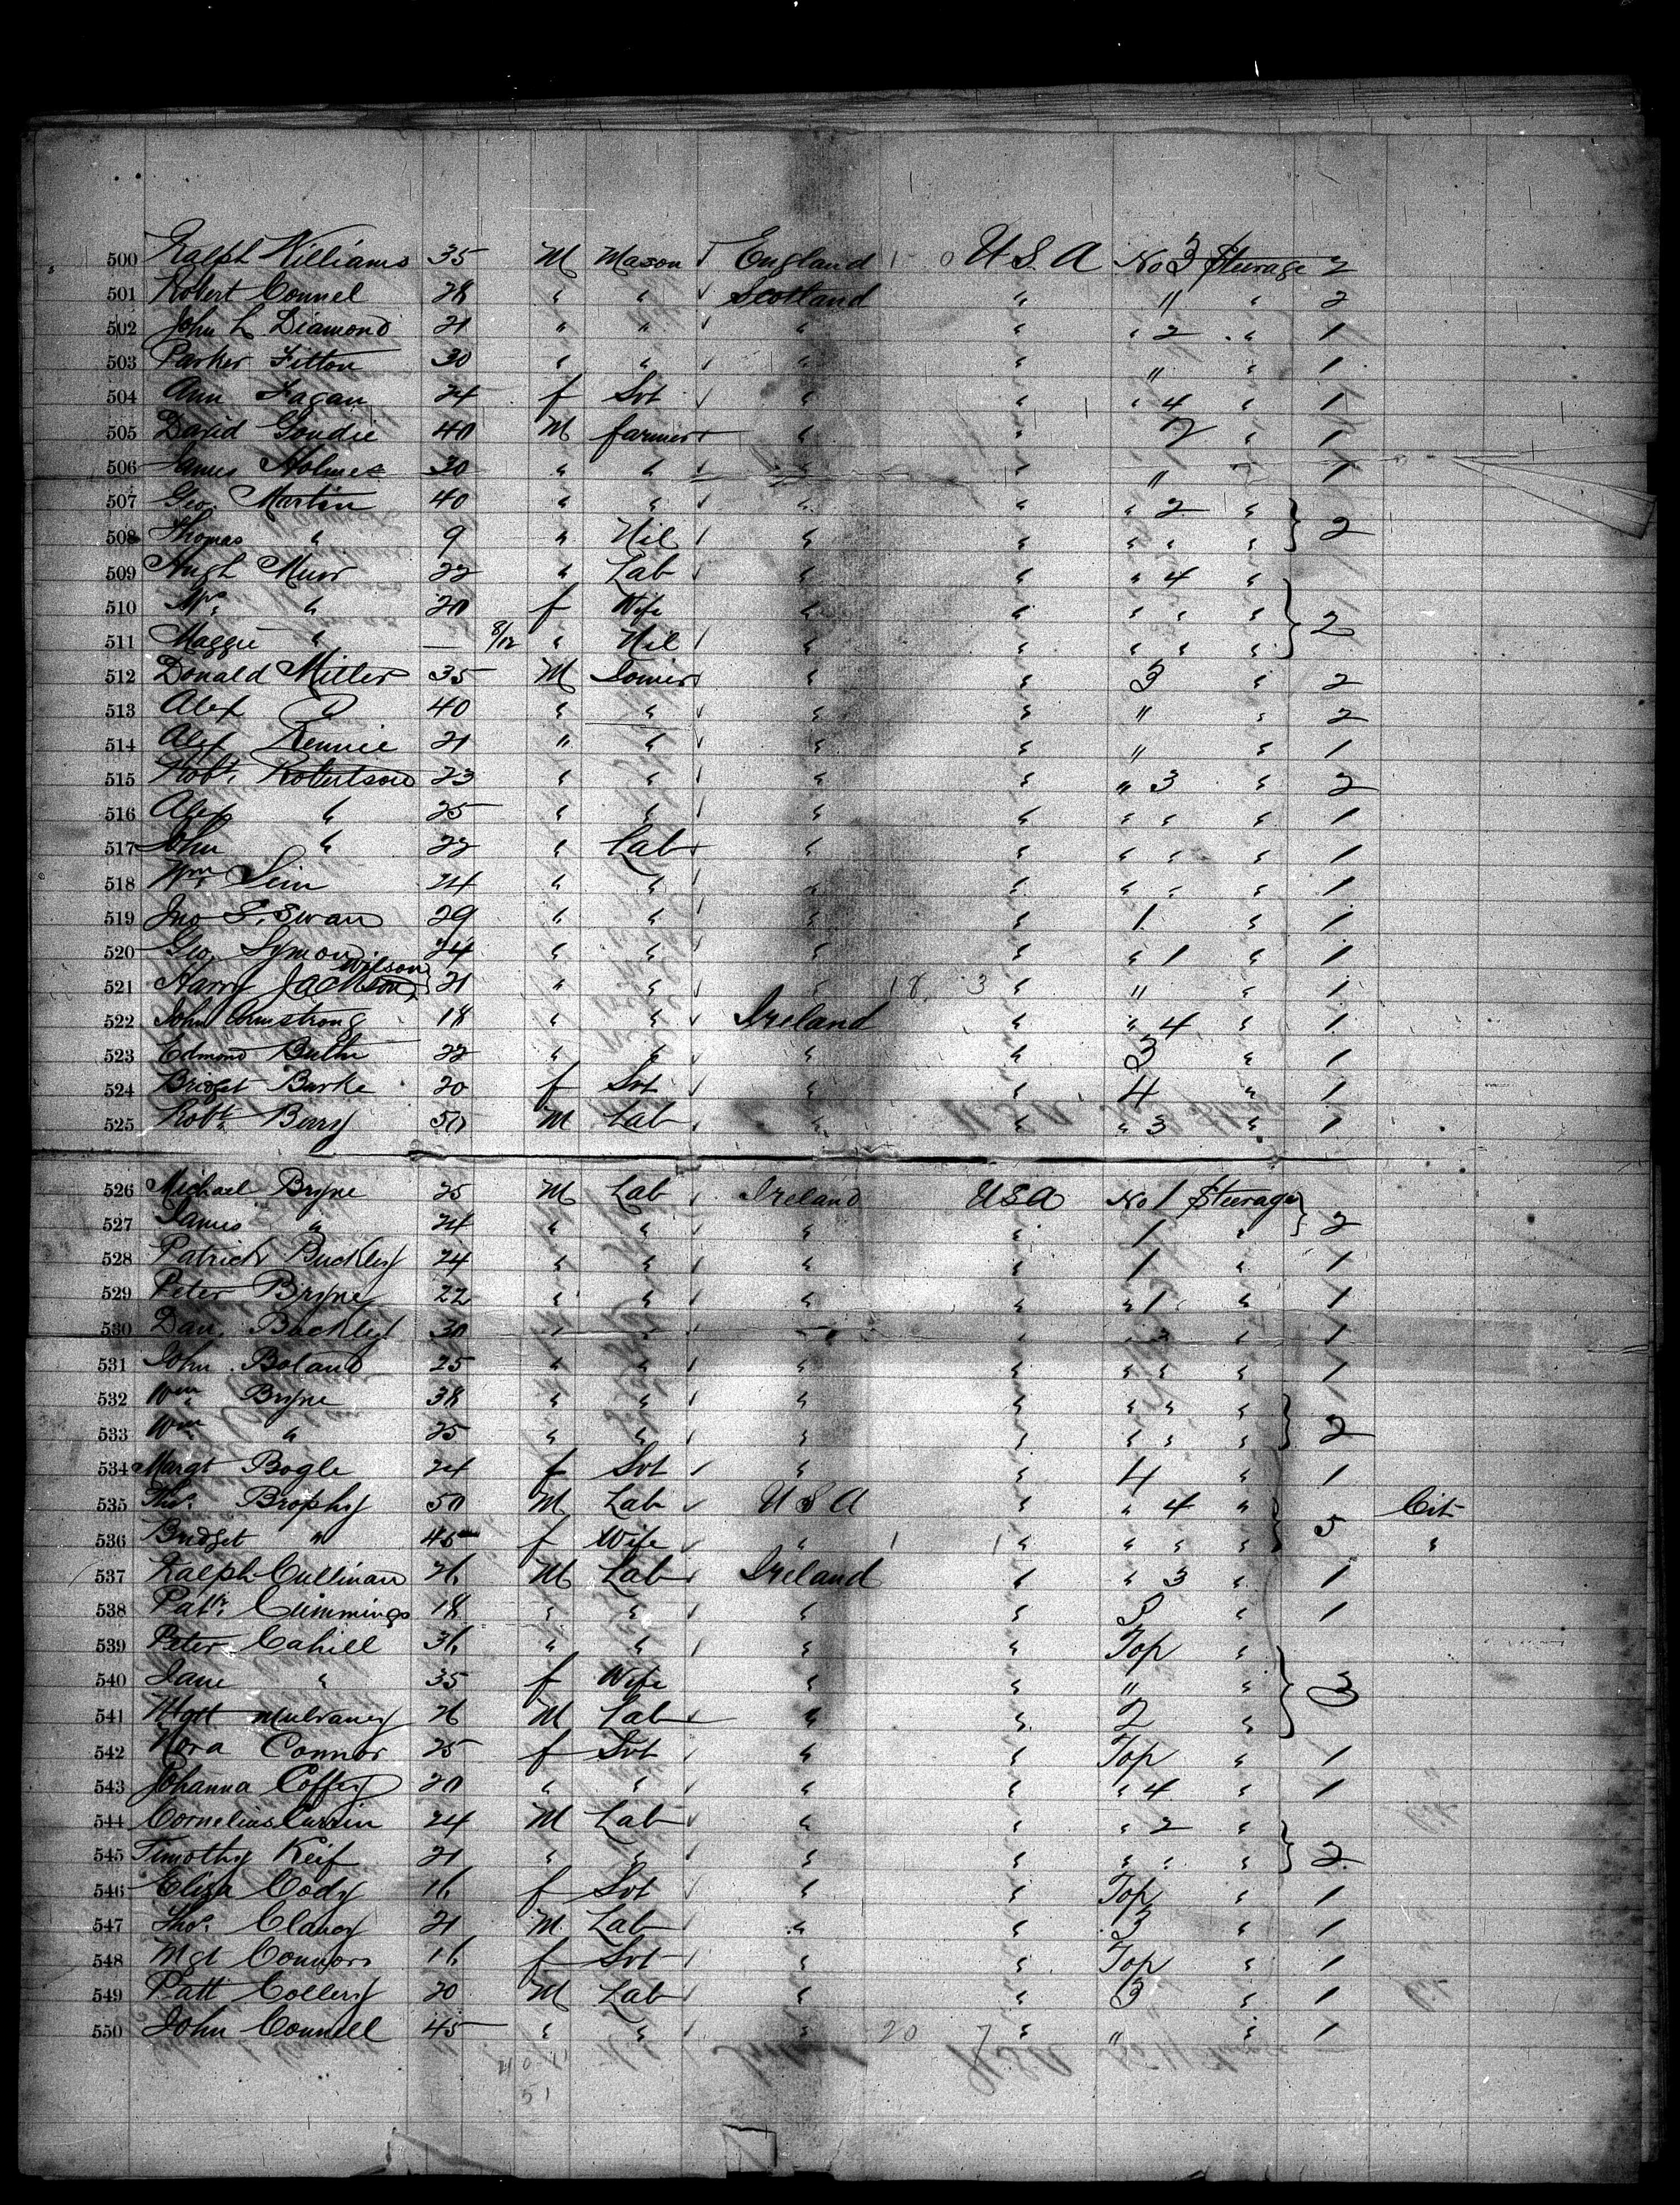 500 Ralph Williams 35 M Mason England 1 0 U.S.A No 3 Steerage 2
501 Robert Connel 28 " " Scotland " " " 2
502 John L Diamond 21 " " " " " 2 " 1
503 Parker Fitton 30 " " " " " " 1
504 Ann Fagan 24 f Svt " " " 4 " 1
505 David Goudie 40 M farmer " " 2 " 1
506 James Holmes 30 " " " " " " 1
507 Geo. Martin 40 " " " " " 2 "
508 Thomas " 9 " Nil " " " " " } 2
509 Hugh Muir 22 " Lab " " " 4 "
510 Mrs " 20 f Wife " " " " "
511 Maggie " — 8/12 " Nil " " " " " } 2
512 Donald Miller 35 M " " 3 " 2
513 Alex 40 " " " " " " 2
514 Alex Rennie 21 " " " " " " 1
515 Robt. Robertson 23 " " " " " 3 " 2
516 Alex " 25 " " " " " " " 1
517 John " 22 " Lab " " " " " 1
518 Wm. Sim 24 " " " " " " " 1
519 Jno S. Swan 29 " " " " 1 " 1
520 Geo. Symon 24 " " " " " 1 " 1
521 Harry Jackson Wilson } 21 " " " 18 3 " " " 1
522 John Armstrong 18 " " Ireland " " 4 " 1
523 Edmond 22 " " " " 3 " 1
524 Bridget Burke 20 f Svt " " 4 " 1
525 Robt. Berry 50 M Lab " " " 3 " 1
526 Michael Bryne 25 M Lab Ireland USA No 1 Steerage
527 James " 24 " " " " 1 " } 2
528 Patrick Buckley 24 " " " " 1 " 1
529 Peter Bryne 22 " " " " " 1 " 1
530 Dan. Buckley 30 " " " " " 2 " 1
531 John Boland 25 " " " " " " " 1
532 Wm Bryne 38 " " " " " " "
533 Wm " 25 " " " " " " " } 2
534 Margt Bogle 24 f Svt " " 4 " 1
535 Thos. Brophy 50 M Lab U S A " " 4 " Cit
536 Bridget " 45 f Wife " 1 1 " " " " } 5 "
537 Ralph Cullinan 26 M Lab Ireland " " 3 " 1
538 Patk. Cummings 18 " " " " 3 " 1
539 Peter Cahill 36 " " " " Top "
540 Jane " 35 f Wife " " " " } 3
541 Matt Mulraney 26 M Lab " " 2 "
542 Nora Connor 25 f Svt " " Top " 1
543 Johanna Coffey 20 " " " " " 4 " 1
544 Cornelius 24 M Lab " " " 2 "
545 Timothy Keif 21 " " " " " " " } 2
546 Eliza Cody 16 f Svt " " Top " 1
547 Thos. Clancy 21 M Lab " " 3 " 1
548 Mgt Connors 16 f Svt " " Top " 1
549 Patt Collery 20 M Lab " " 3 " 1
550 John Connell 45 " " " 20 7 " " " 1
51